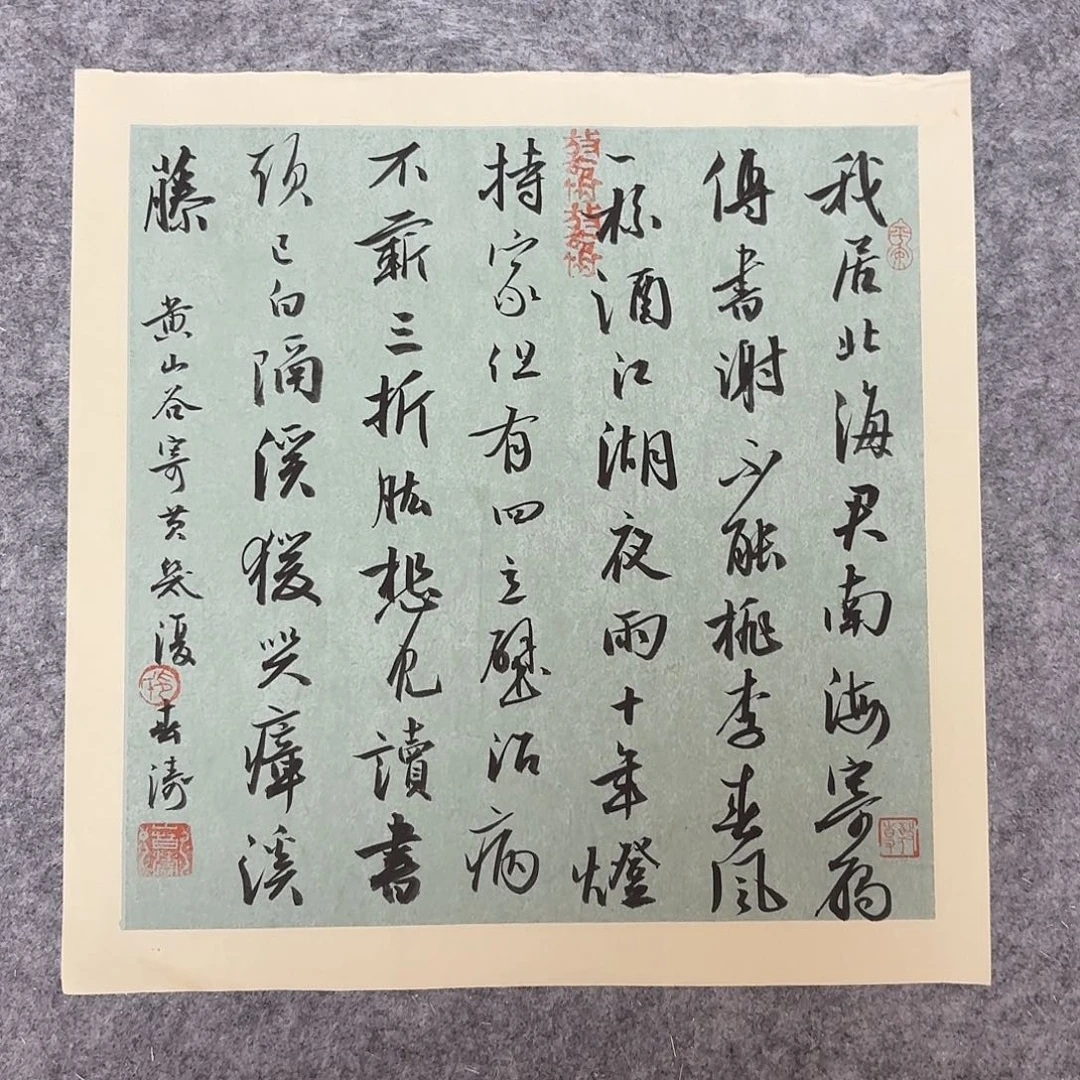 我居北海君南海寄鴈
傳書謝不能桃李春風
一杯酒江湖夜雨十年燈
持家但有四立壁治病
不蘄三折肱想見讀書
頭已白隔溪猨哭瘴溪
藤
黄山谷寄黄幾復 春濤